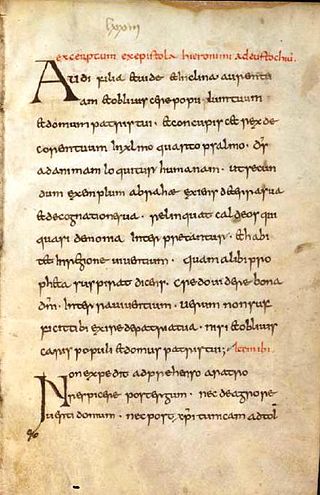 lxxiii
excerptum ex epistola hieronimi ad eustochiū.
Audi filia et uide et inclina aurem tu
am et obliuiscere populum tuum
et domum patris tui . et concupiscet rex de
corem tuum In xlmo quarto psalmo . ds
ad animam loquitur humanam . ut secun
dum exemplum abrahae exiens de terra sua
et de cognatione sua . relinquat caldeos qui
quasi demonia Inter praetantur . et habi
tet In regione uiuentium . quam alibi pro
pheta suspirat dicens . credo uidere bona
dni . In terra uiuentium . uerum non suf
ficit tibi exire de patria tua . nisi obliuis
caris populi et domus patris tui ; Item ibi
Non expedit adprehenso aratro
respicere postergum . nec de agro re
uerti domum . nec post xpi tunicam ad tol